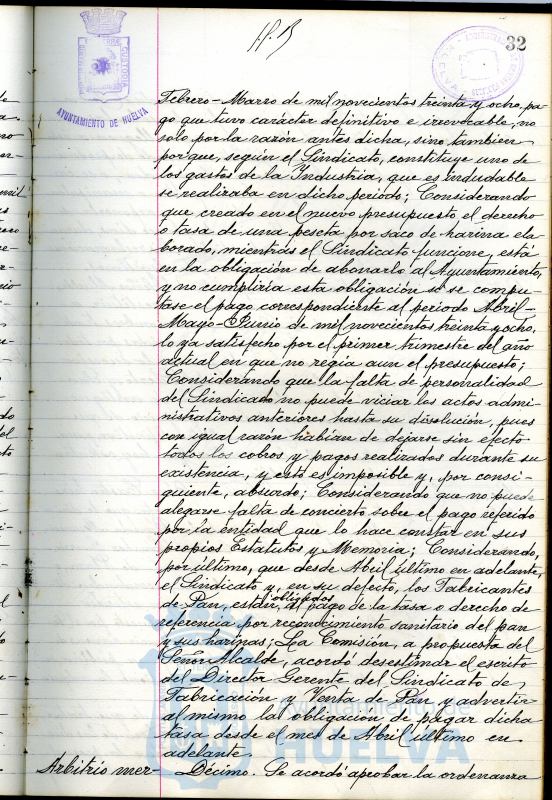 32
AYUNTAMIENTO DE HUELVA
Febrero-Marzo de mil novecientos treinta y ocho, pa-
go que tuvo carácter definitivo e irrevocable, no
solo por la razón antes dicha, sino tambien
porque, según el Sindicato, constituye uno de
los gastos de la Industria, que es indudable
se realizaba en dicho periodo; Considerando
que creado en el nuevo presupuesto el derecho
o tasa de una peseta por saco de harina ela-
borado, mientras el Sindicato funcione, está
en la obligación de abonarlo al Ayuntamiento,
y no cumpliria esta obligación si se compu-
tase el pago correspondiente al periodo Abril-
Mayo-Junio de mil novecientos treinta y ocho,
lo ya satisfecho por el primer trimestre del año
actual en que no regía aun el presupuesto;
Considerando que la falta de personalidad
del Sindicato no puede viciar los actos admi-
nistrativos anteriores hasta su disolución, pues
con igual razón habian de dejarse sin efecto
todos los cobros y pagos realizados durante su
existencia, y esto es imposible y, por consi-
guiente, absurdo; Considerando que no puede
alegarse falta de concierto sobre el pago referido
por la entidad que lo hace constar en sus
propios Estatutos y Memoria; Considerando,
por último, que desde Abril último en adelante,
el Sindicato y, en su defecto, los Fabricantes
de Pan, están obligados al pago de la tasa o derecho de
referencia por reconocimiento sanitario del pan
y sus harinas; La Comisión, a propuesta del
Señor Alcalde, acordó desestimar el escrito
del Director Gerente del Sindicato de
Fabricación y Venta de Pan y advertir
al mismo la obligación de pagar dicha
tasa desde el mes de Abril último en
adelante.
Arbitrio mer- Décimo. Se acordó aprobar la ordenanza
Ayuntamiento de
HUELVA